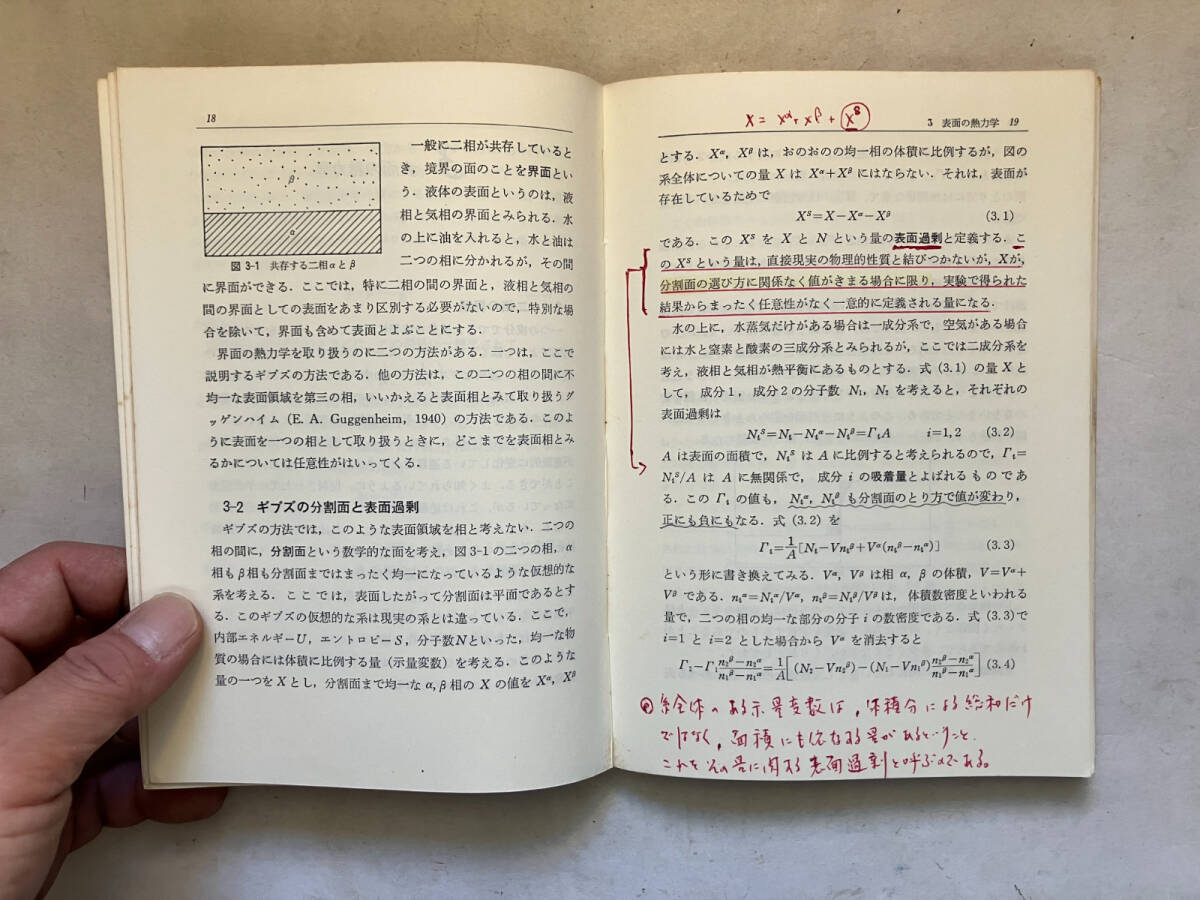 18
β
α
図 3-1 共存する二相αとβ
一般に二相が共存していると
き，境界の面のことを界面とい
う．液体の表面というのは，液
相と気相の界面とみられる．水
の上に油を入れると，水と油は
二つの相に分かれるが，その間
に界面ができる．ここでは，特に二相の間の界面と，液相と気相の
間の界面としての表面をあまり区別する必要がないので，特別な場
合を除いて，界面も含めて表面とよぶことにする．
界面の熱力学を取り扱うのに二つの方法がある．一つは，ここで
説明するギブズの方法である．他の方法は，この二つの相の間に不
均一な表面領域を第三の相，いいかえると表面相とみて取り扱うグ
ッゲンハイム (E. A. Guggenheim, 1940) の方法である．このよ
うに表面を一つの相として取り扱うときに，どこまでを表面相とみ
るかについては任意性がはいってくる．
3-2 ギブズの分割面と表面過剰
ギブズの方法では，このような表面領域を相と考えない．二つの
相の間に，分割面という数学的な面を考え，図3-1の二つの相，α
相もβ相も分割面まではまったく均一になっているような仮想的な
系を考える．ここでは，表面したがって分割面は平面であるとす
る．このギブズの仮想的な系は現実の系とは違っている．ここで，
内部エネルギーU，エントロピーS，分子数Nといった，均一な物
質の場合には体積に比例する量（示量変数）を考える．このような
量の一つをXとし，分割面まで均一なα,β相のXの値をXα, Xβ
X = Xα + Xβ + Xs
3 表面の熱力学 19
とする．Xα, Xβは，おのおのの均一相の体積に比例するが，図の
系全体についての量XはXα+Xβにはならない．それは，表面が
存在しているためで
XS=X−Xα−Xβ (3.1)
である．このXSをXとNという量の表面過剰と定義する．こ
のXSという量は，直接現実の物理的性質と結びつかないが，Xが，
分割面の選び方に関係なく値がきまる場合に限り，実験で得られた
結果からまったく任意性がなく一意的に定義される量になる．
水の上に，水蒸気だけがある場合は一成分系で，空気がある場合
には水と窒素と酸素の三成分系とみられるが，ここでは二成分系を
考え，液相と気相が熱平衡にあるものとする．式 (3.1) の量Xと
して，成分1，成分2の分子数N1, N2を考えると，それぞれの
表面過剰は
NiS=Ni−Niα−Niβ=ΓiA i=1, 2 (3.2)
Aは表面の面積で，NiSはAに比例すると考えられるので，Γi=
NiS/AはAに無関係で，成分iの吸着量とよばれるものであ
る．このΓiの値も，Niα, Niβも分割面のとり方で値が変わり，
正にも負にもなる．式 (3.2) を
Γi=1/A[Ni−Vniβ+Vα(niβ−niα)] (3.3)
という形に書き換えてみる．Vα, Vβは相α, βの体積，V=Vα+
Vβである．niα=Niα/Vα, niβ=Niβ/Vβは，体積数密度といわれる
量で，二つの相の均一な部分の分子iの数密度である．式 (3.3)で
i=1とi=2とした場合からVαを消去すると
Γ2−Γ1 (n2β−n2α)/(n1β−n1α)=1/A[(N2−Vn2β)−(N1−Vn1β)(n2β−n2α)/(n1β−n1α)] (3.4)
系全体のある示量変数は，体積分による総和だけ
ではなく，面積にも依存する量があるということ．
これをその量に関する表面過剰と呼ぶのである。